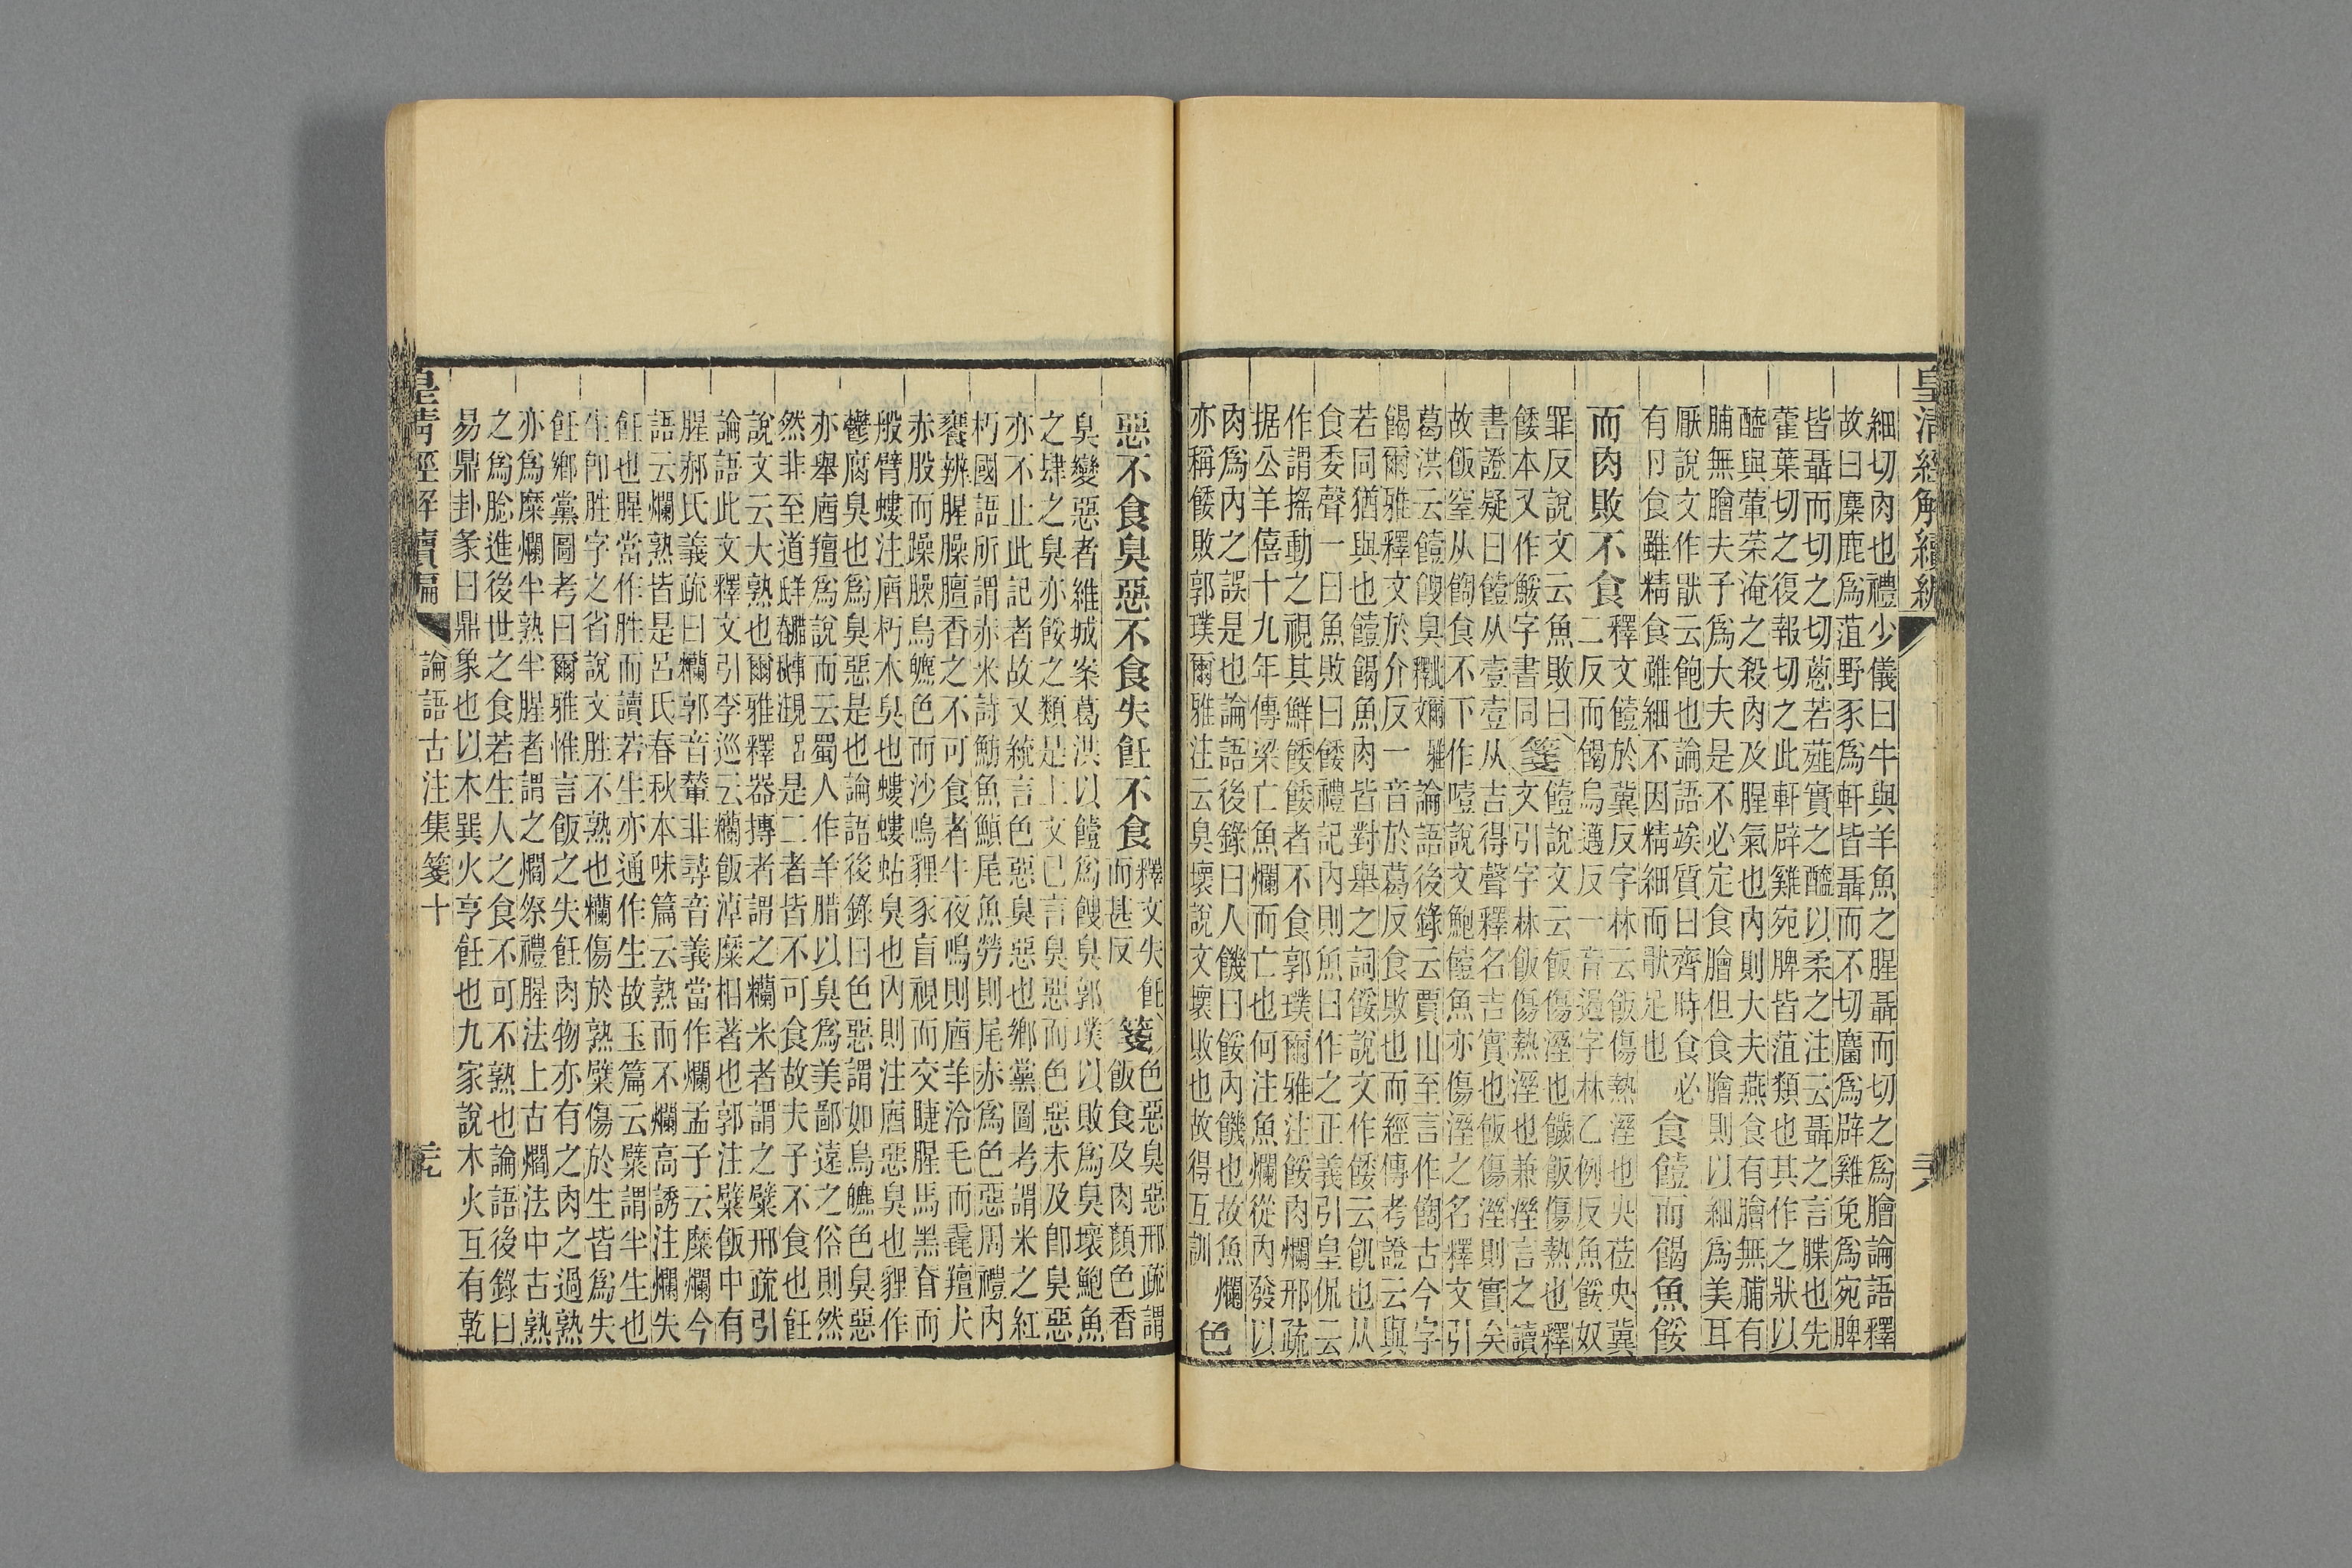 皇清經解續編
細切肉也禮少儀曰牛與羊魚之腥聶而切之爲膾論語釋
故曰麋鹿爲菹野豕爲軒皆聶而不切麕爲辟雞兔爲宛脾
皆聶而切之切蔥若薤實之醯以柔之注云聶之言牒也先
藿葉切之復報切之此軒辟雞宛脾皆菹類也其作之狀以
醯與葷菜淹之殺肉及腥氣也內則大夫燕食有膾無脯有
脯無膾夫子爲大夫是不必定食膾但食膾則以細爲美耳
厭說文作猒云飽也論語竢質曰齊時食必
有月食雖精食雖細不因精細而猒足也
食饐而餲魚餒
而肉敗不食
釋文饐於冀反字林云飯傷熱溼也央莅央冀
二反而餲烏邁反一音遏字林乙例反魚餒奴
罪反說文云魚敗曰
餧本又作鮾字書同
箋
饐說文云飯傷溼也饖飯傷熱也釋
文引字林飯傷熱溼也兼溼言之讀
書證疑曰饐从壹壹从吉得聲釋名吉實也飯傷溼則實矣
故飯窒从餲食不下作噎說文鮑饐魚亦傷溼之名釋文引
葛洪云饐餿臭 論語後錄云賈山至言作餲古今字
餲爾雅釋文於介反一音於葛反食敗也而經傳考證云與
若同猶與也饐餲魚肉皆對舉之詞餒說文作餧云飢也从
食委聲一曰魚敗曰餧禮記內則魚曰作之正義引皇侃云
作謂搖動之視其鮮餧餧者不食郭璞爾雅注餒肉爛邢疏
据公羊僖十九年傳梁亡魚爛而亡也何注魚爛從內發以
肉爲內之誤是也論語後錄曰人饑曰餒內饑也故魚爛
亦稱餧敗郭璞爾雅注云臭壞說文壞敗也故得互訓
色
惡不食臭惡不食失飪不食
釋文失飪
而甚反
箋
色惡臭惡邢疏謂
飯食及肉顏色香
臭變惡者維城案葛洪以饐爲餿臭郭璞以敗爲臭壞鮑魚
之肆之臭亦餒之類是上文已言臭惡而色惡未及卽臭惡
亦不止此記者故又統言色惡臭惡也鄉黨圖考謂米之紅
朽國語所謂赤米詩魴魚赬尾魚勞則尾赤爲色惡周禮內
饔辨腥臊羶香之不可食者牛夜鳴則庮羊泠毛而毳羶犬
赤股而躁臊鳥皫色而沙鳴貍豕盲視而交睫腥馬黑脊而
般臂螻注庮朽木臭也螻螻蛄臭也內則注庮惡臭也貍作
鬱腐臭也爲臭惡是也論語後錄曰色惡謂如鳥皫色臭惡
亦舉庮羶爲說而云蜀人作羊腊以臭爲美鄙遠之俗則然
然非至道 是二者皆不可食故夫子不食也飪
說文云大熟也爾雅釋器摶者謂之糷米者謂之糪邢疏引
論語此文釋文引李巡云糷飯淖糜相著也郭注糪飯中有
腥郝氏義疏曰爤郭音輦非尋音義當作爛孟子云糜爛今
語云爛熟皆是呂氏春秋本味篇云熟而不爛高誘注爛失
飪也腥當作胜而讀若生亦通作生故玉篇云糪謂半生也
生卽胜字之省說文胜不熟也糷傷於熟糪傷於生皆爲失
飪鄉黨圖考曰爾雅惟言飯之失飪肉物亦有之肉之過熟
亦爲糜爛半熟半腥者謂之爓祭禮腥法上古爓法中古熟
之爲腍進後世之食若生人之食不可不熟也論語後錄曰
易鼎卦彖曰鼎象也以木巽火亨飪也九家說木火互有乾
皇清經解續編
論語古注集箋十